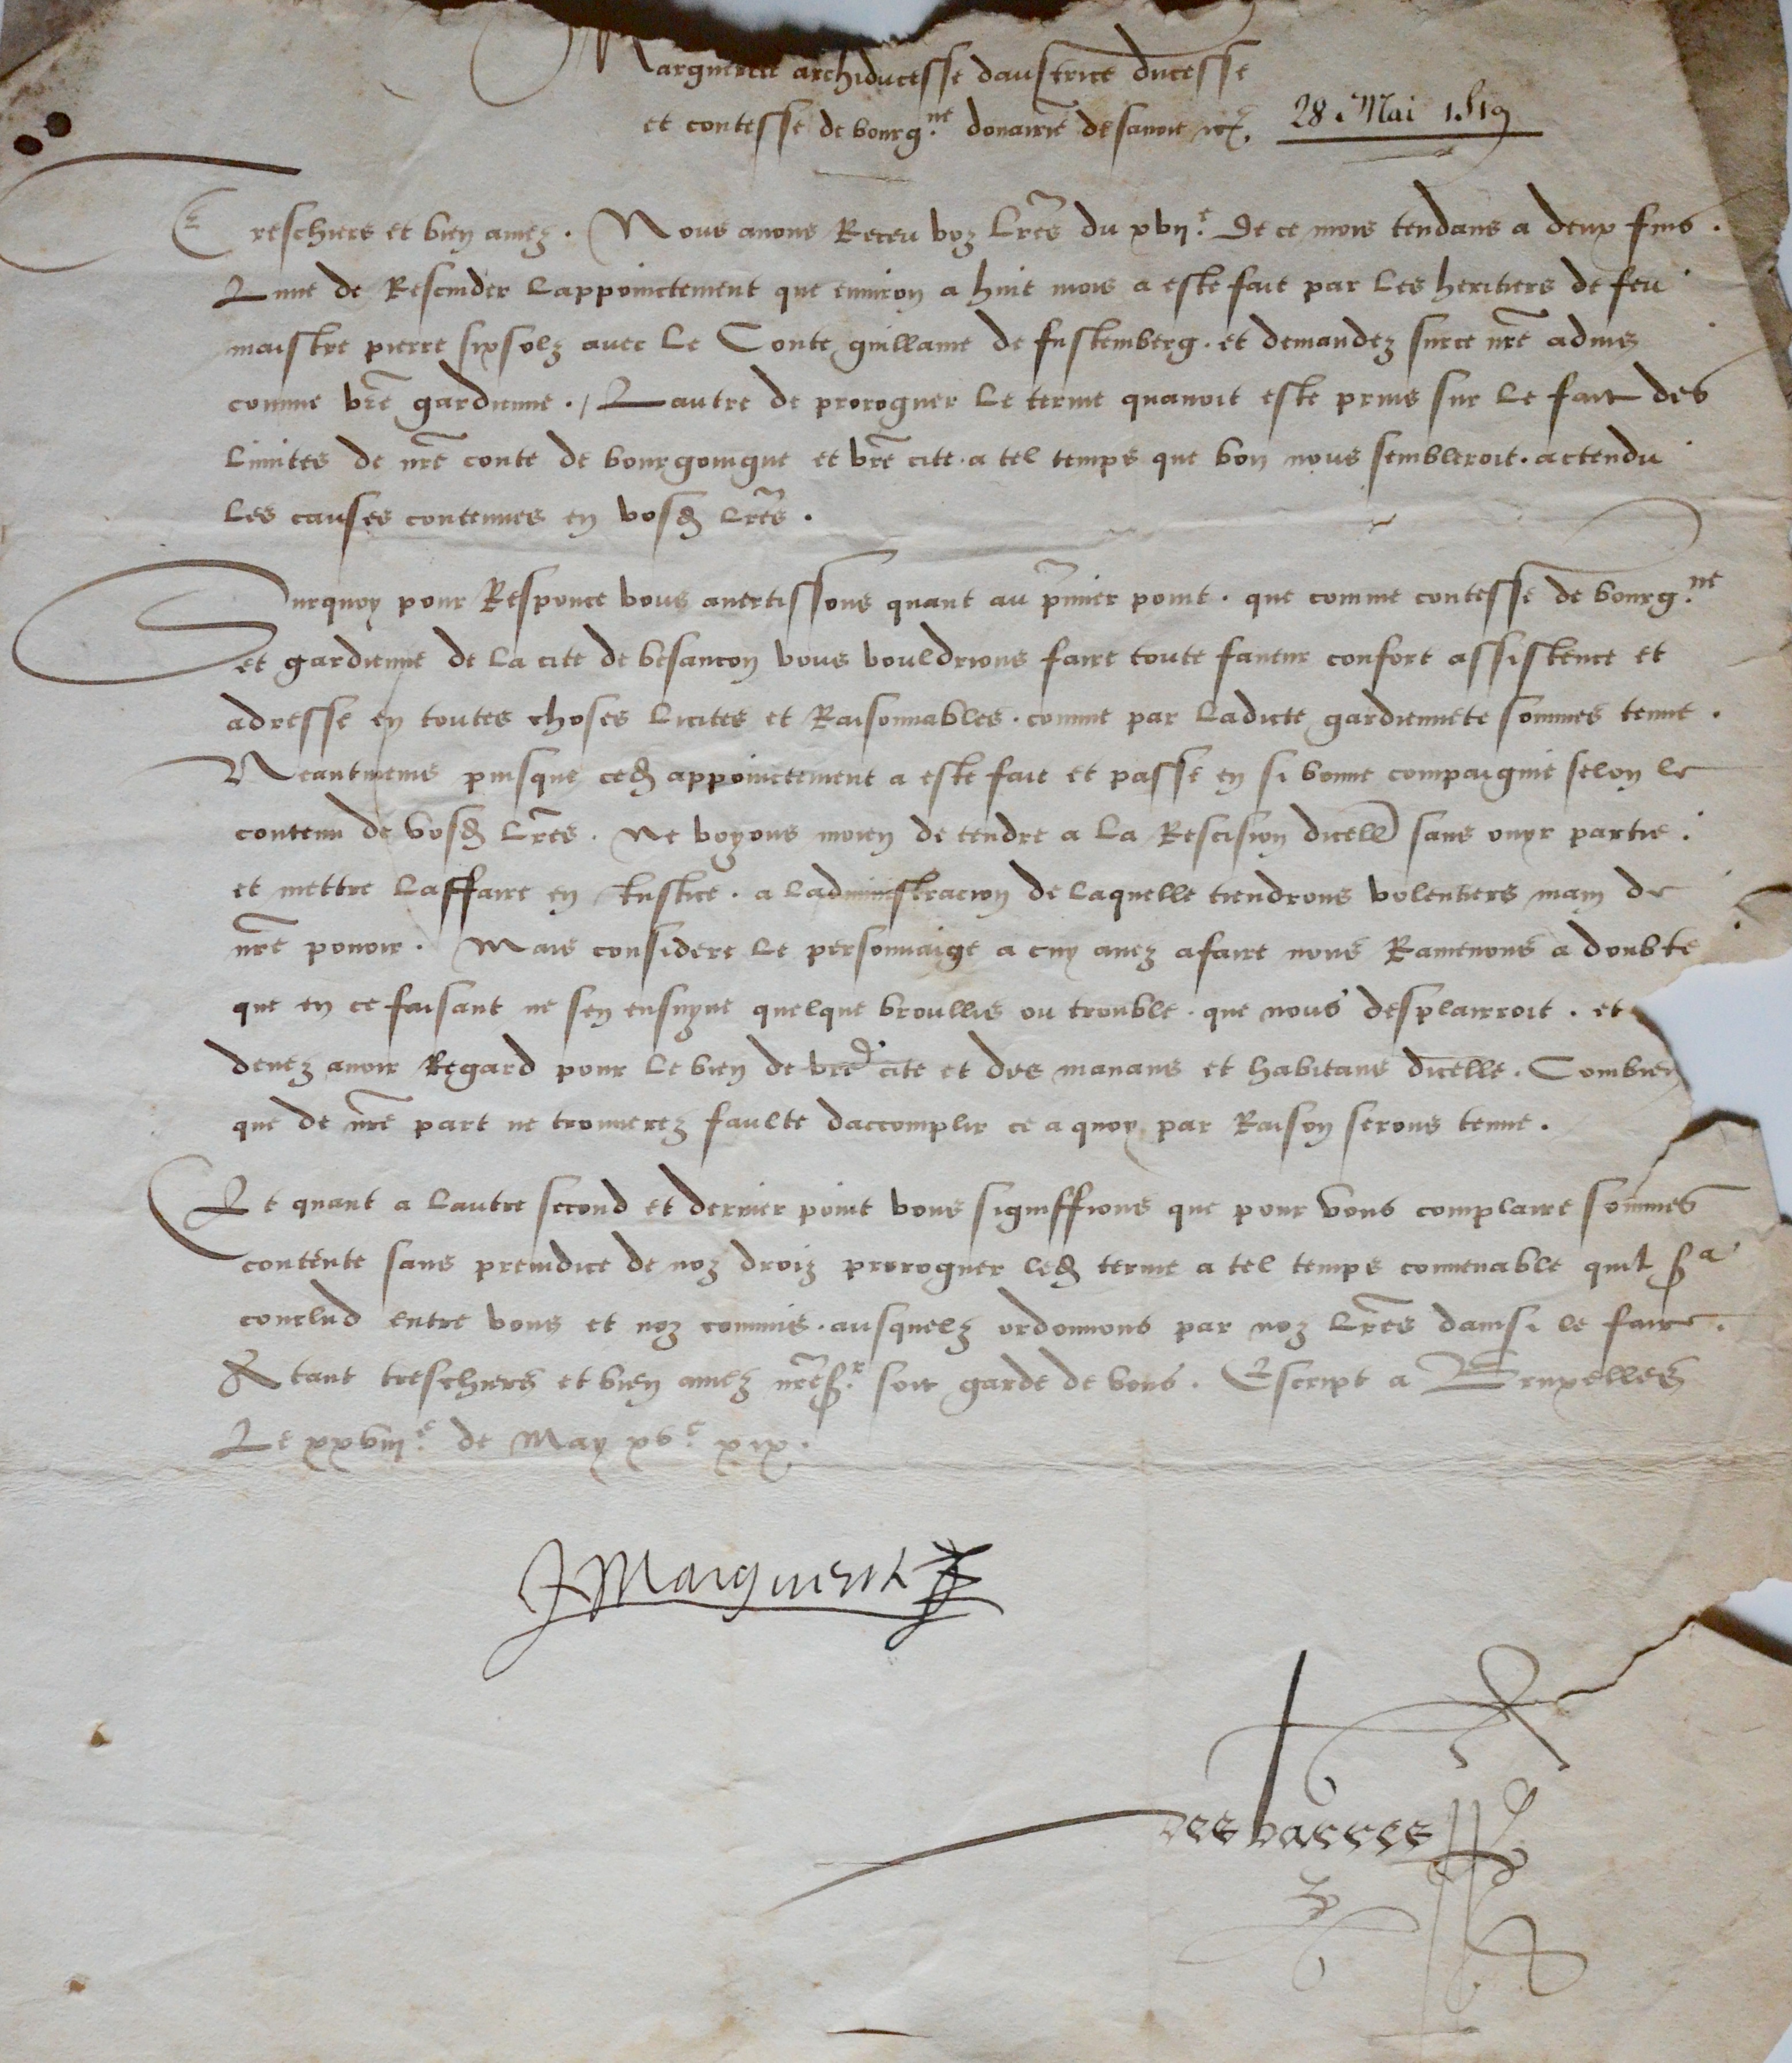 Marguerite archiducesse daustrice ducesse
et contesse de bourg.ne douairie de savoie etc.
28 Mai 1519
Treschiers et bien amez. Nous avons Receu voz Lres du xvije. de ce mois tendans a deux fins.
Lune de Rescinder Lappoinctement que environ a huit mois a este fait par Les heritiers de feu
maistre pierre sixsolz avec Le Conte guillame de fustemberg. et demandez surce nre advis
comme vre gardienne. / Lautre de proroguer Le terme quavoit este prins sur Le fait des
Limites de nre conte de bourgoingne et vre cite. a tel temps que bon nous sembleroit. actendu
Les causes contenues en vosd Lres.
Surquoy pour Responce vous avertissons quant au pmier point. que comme contesse de bourg.ne
et gardienne de La cite de besancon vous vouldrions faire toute faveur confort assistence et
adresse en toutes choses Licites et Raisonnables. comme par Ladicte gardiennete sommes tenue.
Neantmeins puisque ced appoinctement a este fait et passe en si bonne compaignie selon le
contenu de vosd Lres. Ne voyons moien de tendre a La Rescision dicell sans ouyr partie.
et mettre Laffaire en Justice. a Ladministracion de Laquelle tiendrons volentiers main de
nre povoir. Mais considere Le personnaige a cuy avez afaire nous Ramenons a doubte
que en ce faisant ne sen ensuyve quelque broullis ou trouble. que nous desplairroit. et
devez avoir Regard pour Le bien de vred cite et des manans et habitans dicelle. Combien
que de nre part ne trouverez faulte daccomplir ce a quoy par Raison serons tenue.
Et quant a Lautre second et dernier point vous signiffions que pour vous complaire sommes
contente sans preiudice de noz droiz proroguer led terme a tel temps convenable quil sa
conclud entre vous et noz commis. ausquelz ordonnons par noz Lres dainsi le faire.
Atant treschiers et bien amez nre sr. soit garde de vous. Escript a Bruxelles
Le xxviije. de May xve. xix.
Marguerite
des barres